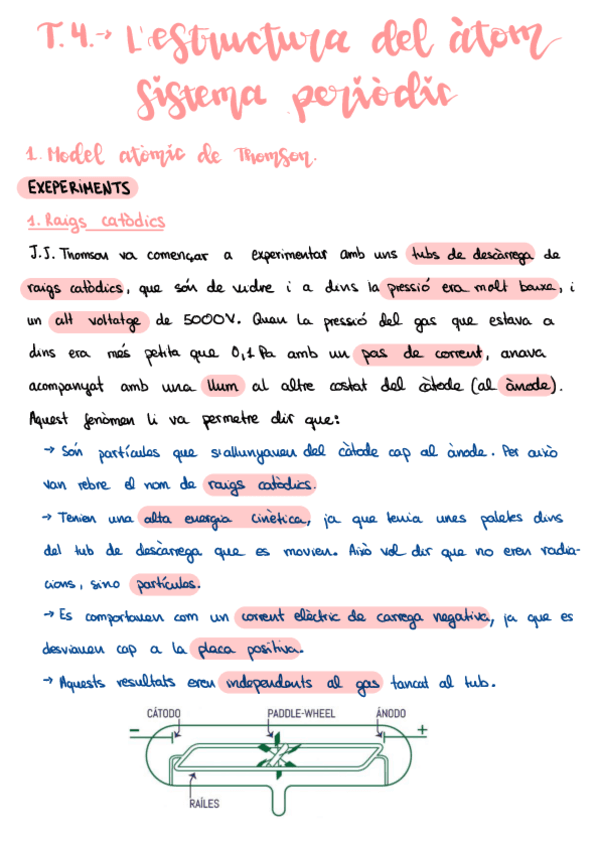 T.4.→ L'estructura del àtom
sistema periòdic
1. Model atòmic de Thomson.
EXEPERIMENTS
1. Raigs catòdics
J.J. Thomson va començar a experimentar amb uns tubs de descàrrega de
raigs catòdics, que són de vidre i a dins la pressió era molt baixa, i
un alt voltatge de 5000V. Quan la pressió del gas que estava a
dins era més petita que 0,1 Pa amb un pas de corrent, anava
acompanyat amb una llum al altre costat del càtode (al ànode).
Aquest fenòmen li va permetre dir que:
→ Són partícules que s'allunyaven del càtode cap al ànode. Per això
van rebre el nom de raigs catòdics.
→ Tenien una alta energia cinètica, ja que tenia unes paletes dins
del tub de descàrrega que es movien. Això vol dir que no eren radia-
cions, sino partícules.
→ Es comportaven com un corrent elèctric de carrega negativa, ja que es
desviaven cap a la placa positiva.
→ Aquests resultats eren independents al gas tancat al tub.
CÁTODO PADDLE-WHEEL ÁNODO
− +
RAÍLES